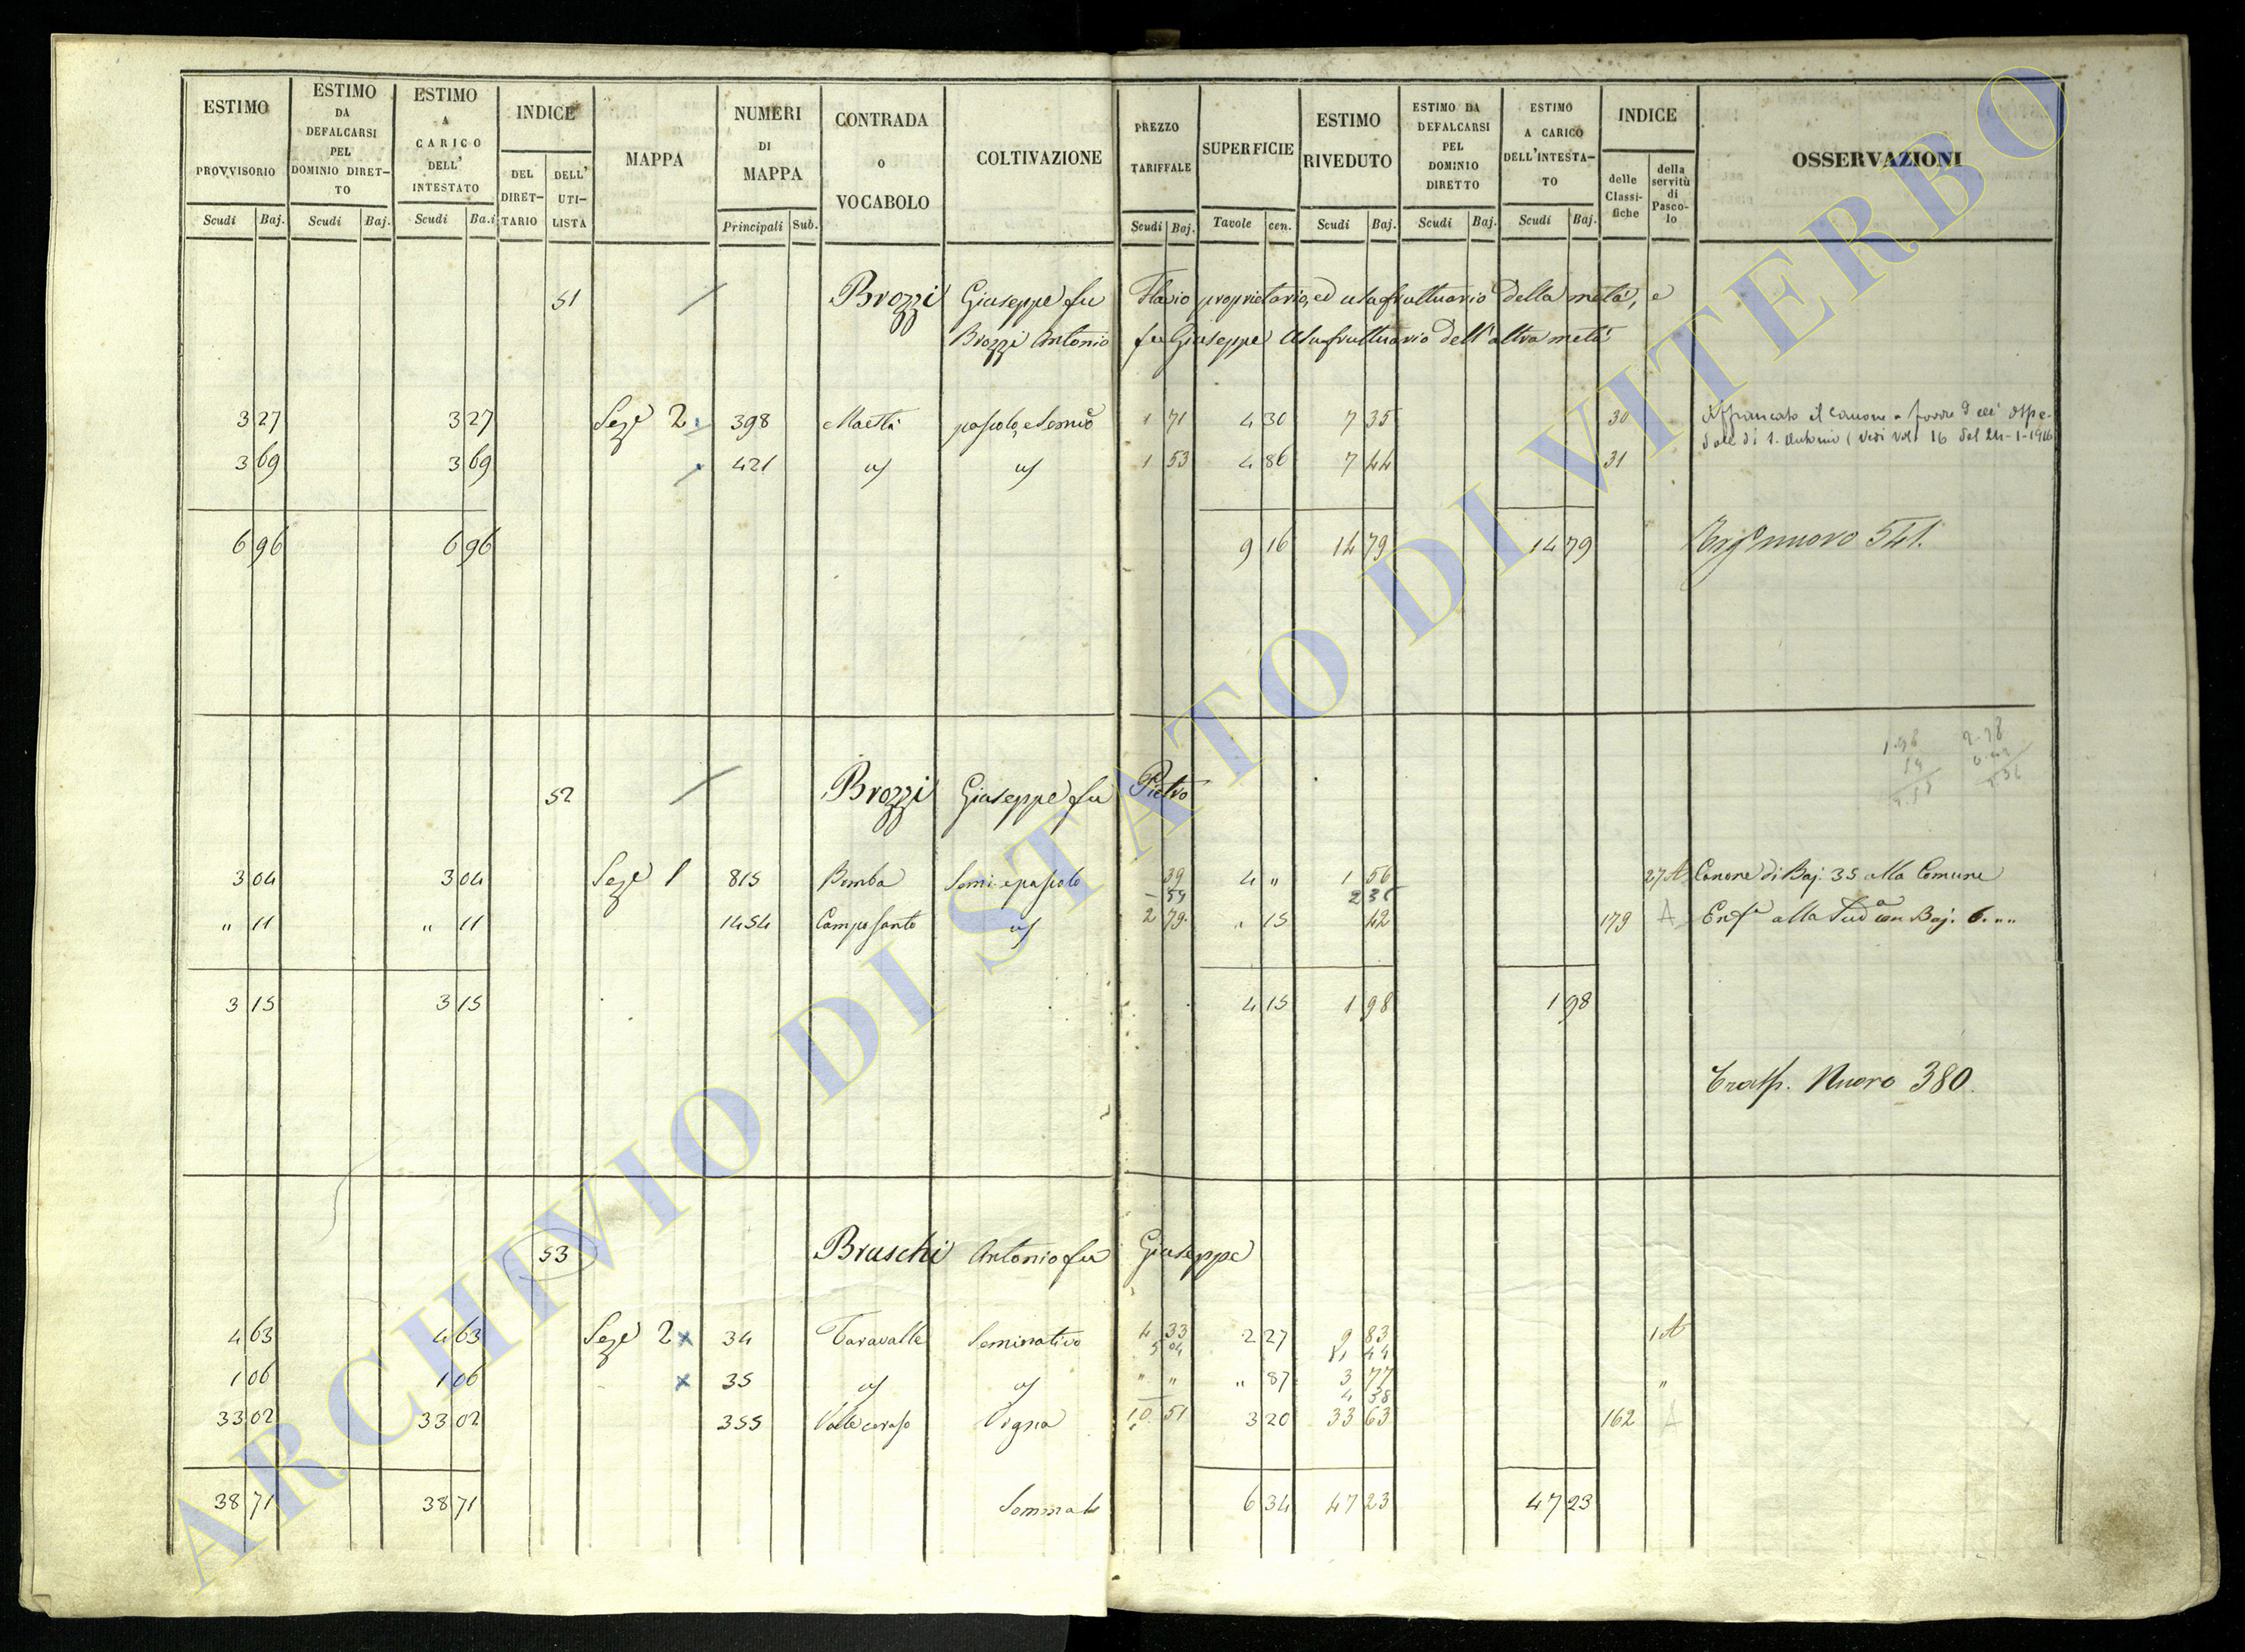 ESTIMO PROVVISORIO Scudi Baj.
ESTIMO DA DEFALCARSI PEL DOMINIO DIRET-TO Scudi Baj.
ESTIMO A CARICO DELL' INTESTATO Scudi Ba.i
INDICE DEL DIRET-TARIO DELL' UTI-LISTA
MAPPA
NUMERI DI MAPPA Principali Sub.
CONTRADA o VOCABOLO
COLTIVAZIONE
PREZZO TARIFFALE Scudi Baj.
SUPERFICIE Tavole cen.
ESTIMO RIVEDUTO Scudi Baj.
ESTIMO DA DEFALCARSI PEL DOMINIO DIRETTO Scudi Baj.
ESTIMO A CARICO DELL'INTESTA-TO Scudi Baj.
INDICE delle Classi-fiche della servitù di Pasco-lo
OSSERVAZIONI
51 Brozzi Giuseppe fu Flavio proprietario, ed usufruttuario della metà, e
Brozzi Antonio fu Giuseppe Usufruttuario dell'altra metà
3 27 3 27 Seze 2 398 pascolo, e Semio 1 71 4 30 7 35 30 Affrancato il Canone a favore dell' Ospe-
dale di S. Antonio (Vedi vol. 16 del 24-1-1916
3 69 3 69 421 1 53 4 86 7 44 31
6 96 6 96 9 16 14 79 14 79 nuovo 541.
1.98 2.28
52 Brozzi Giuseppe fu Pietro
3 04 3 04 Seze 1 815 Bomba Semi. e pascolo 39 4 " 1 56 27 A Canone di Baj. 35 alla Comune
" 11 " 11 1454 Campo Santo 2 79 " 15 42 179 A alla Baj. 6. ""
3 15 3 15 4 15 1 98 1 98
Trasp. Nuovo 380.
53 Bruschi Antonio fu Giuseppe
4 63 4 63 Seze 2 x 34 Taravalle Seminativo 4 33 2 27 9 83 1 A
5 04
1 06 1 06 x 35 " " " 87 3 77 "
4 38
33 02 33 02 355 Vigna 10 51 3 20 33 63 162 A
38 71 38 71 Sommale 6 34 47 23 47 23
ARCHIVIO DI STATO DI VITERBO